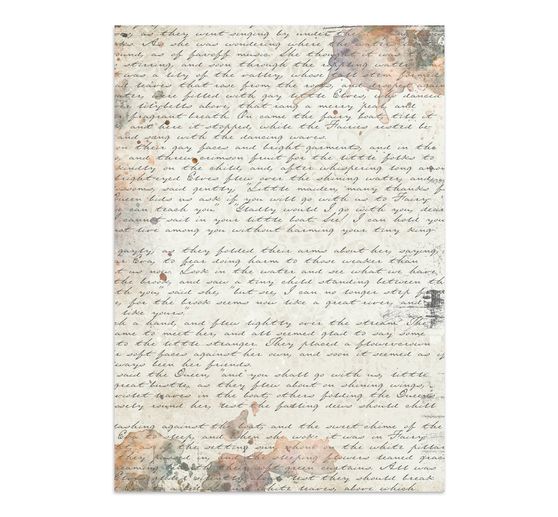 as they went singing by under the
As she was wondering where the
as of faroff music. She thought
stirring, and soon through the rippling water
was a lily of the valley, whose tall stem formed
that rose from the
were filled with gay little Elves, who danced
lilybells above, that rang a merry peal and
fragrant breath. On came the fairy boat, till it
and here it stopped, while the Fairies rested
and sang with the dancing waves.
on their gay faces and bright garments, and in the
and threw crimson fruit for the little folks to
kindly on the child, and, after whispering long among
bright-eyed Elves flew over the shining water, and
blossoms, said gently, "Little maiden, many thanks for
Queen bids us ask if you will go with us to Fairy
can teach you." "Gladly would I go with you, dear
cannot sail in your little boat. See! I can hold you
not live among you without harming your tiny king
gayly, as they folded their arms about her, saying,
Eva, to fear doing harm to those weaker than
us now. Look in the water and see what we have
the brook, and saw a tiny child standing between the
with you," said she, "but see, I can no longer step
for the brook seems now like a great river, and
like yours."
a hand, and flew lightly over the stream. The
came to meet her, and all seemed glad to say some
to the little stranger. They placed a flowercrown
soft faces against her own, and soon it seemed as if
always been her friends.
said the Queen, "and you shall go with us, little
great bustle, as they flew about on shining wings,
violet leaves in the boat, others folding the Queen's
closely round her, lest the falling dews should chill
plashing against the boat, and the sweet chime of the
Eva to sleep, and when she woke it was in Fairy
the setting sun, the white pillars
they in sleeping flowers leaned
green curtains. All was
lest they should break
white leaves, above which